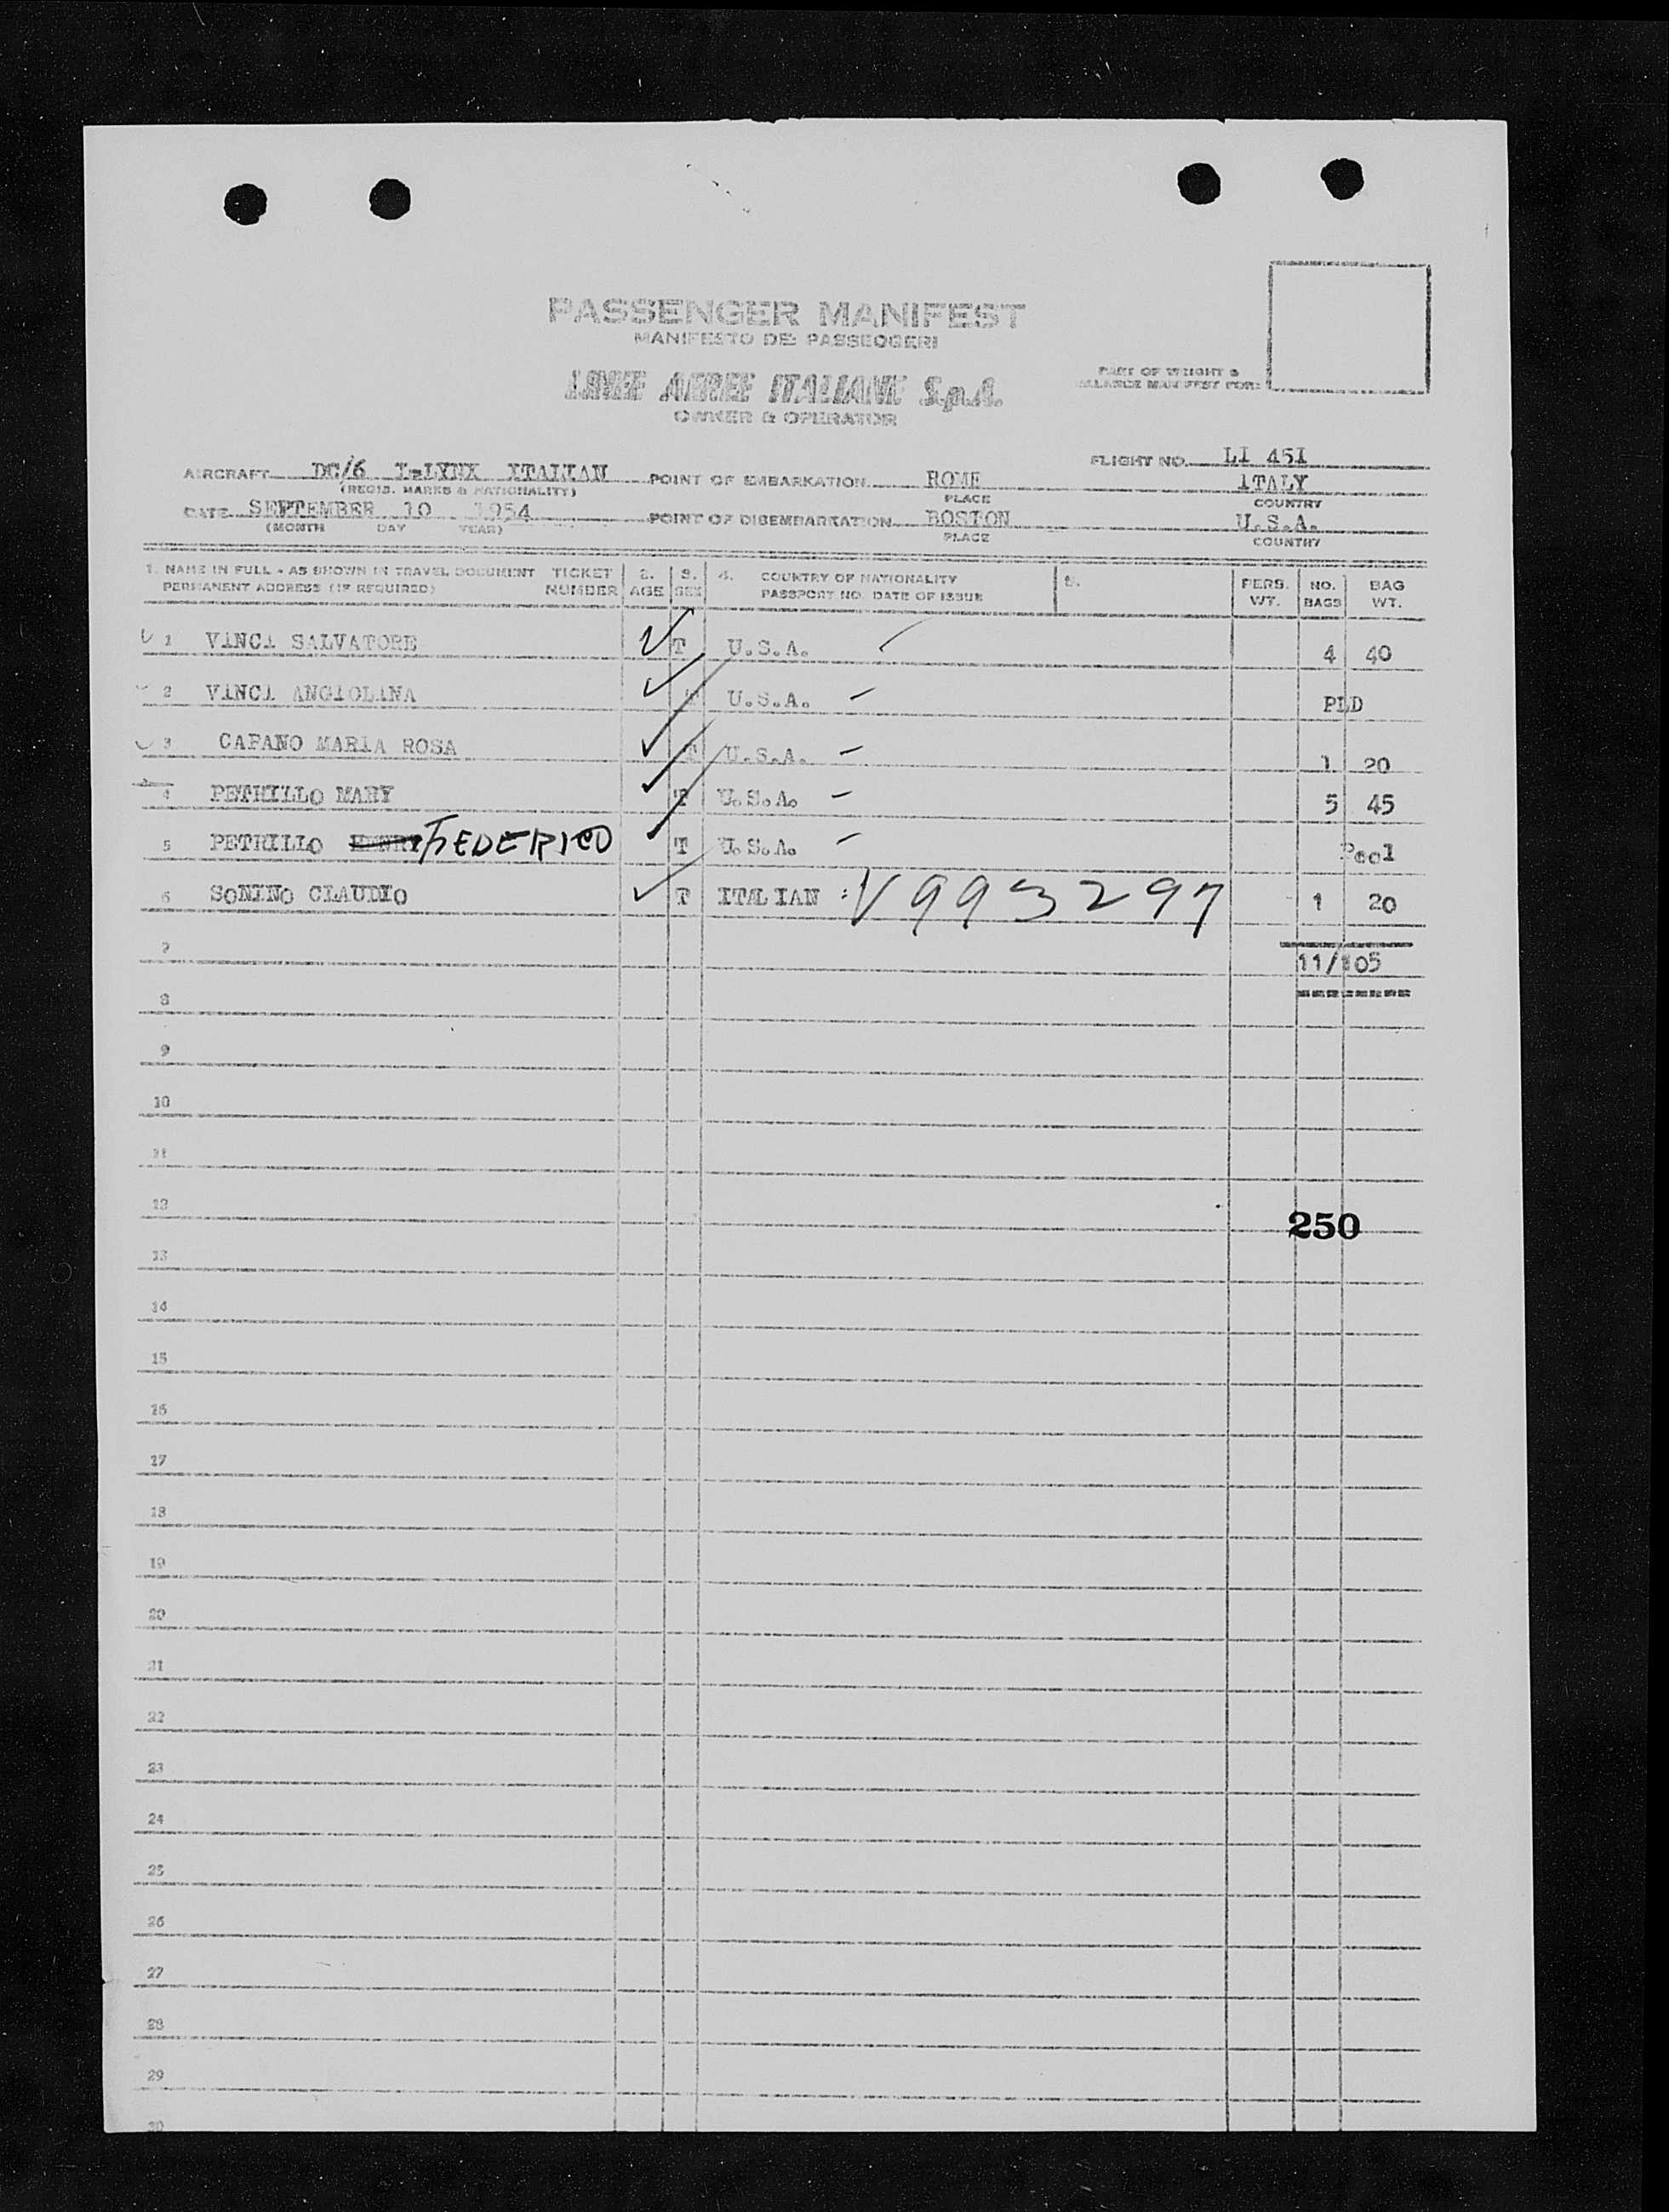 PASSENGER MANIFEST
MANIFESTO DEI PASSEGGERI
LINEE AEREE ITALIANE S.p.A.
OWNER & OPERATOR
PART OF WEIGHT &
BALANCE MANIFEST FORM
FLIGHT NO. LI 451
AIRCRAFT DC/6 I-LYNX ITALIAN POINT OF EMBARKATION ROME ITALY
(REGIS. MARKS & NATIONALITY) PLACE COUNTRY
DATE SEPTEMBER 10 1954 POINT OF DISEMBARKATION BOSTON U.S.A.
(MONTH DAY YEAR) PLACE COUNTRY
1. NAME IN FULL - AS SHOWN IN TRAVEL DOCUMENT TICKET 2. 3. 4. COUNTRY OF NATIONALITY 5. PERS. NO. BAG
PERMANENT ADDRESS (IF REQUIRED) NUMBER AGE SEX PASSPORT NO. DATE OF ISSUE WT. BAGS WT.
1 VINCI SALVATORE T U.S.A. 4 40
2 VINCI ANGIOLINA T U.S.A. PLD
3 CAPANO MARIA ROSA T U.S.A. 1 20
4 PETRILLO MARY T U.S.A. 5 45
5 PETRILLO HENRY FEDERICO T U.S.A. Pool
6 SONINO CLAUDIO T ITALIAN : V993297 1 20
7 11/105
8
9
10
11
12 250
13
14
15
16
17
18
19
20
21
22
23
24
25
26
27
28
29
30